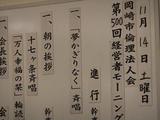 岡崎市倫理法人会
第500回経営者モーニング
11月14日 土曜日
進行 幹
一、朝の挨拶 幹
一、「夢かぎりなく」斉唱
十七ヶ条 斉唱
「万人幸福の栞」輪読
一、会長挨拶 会